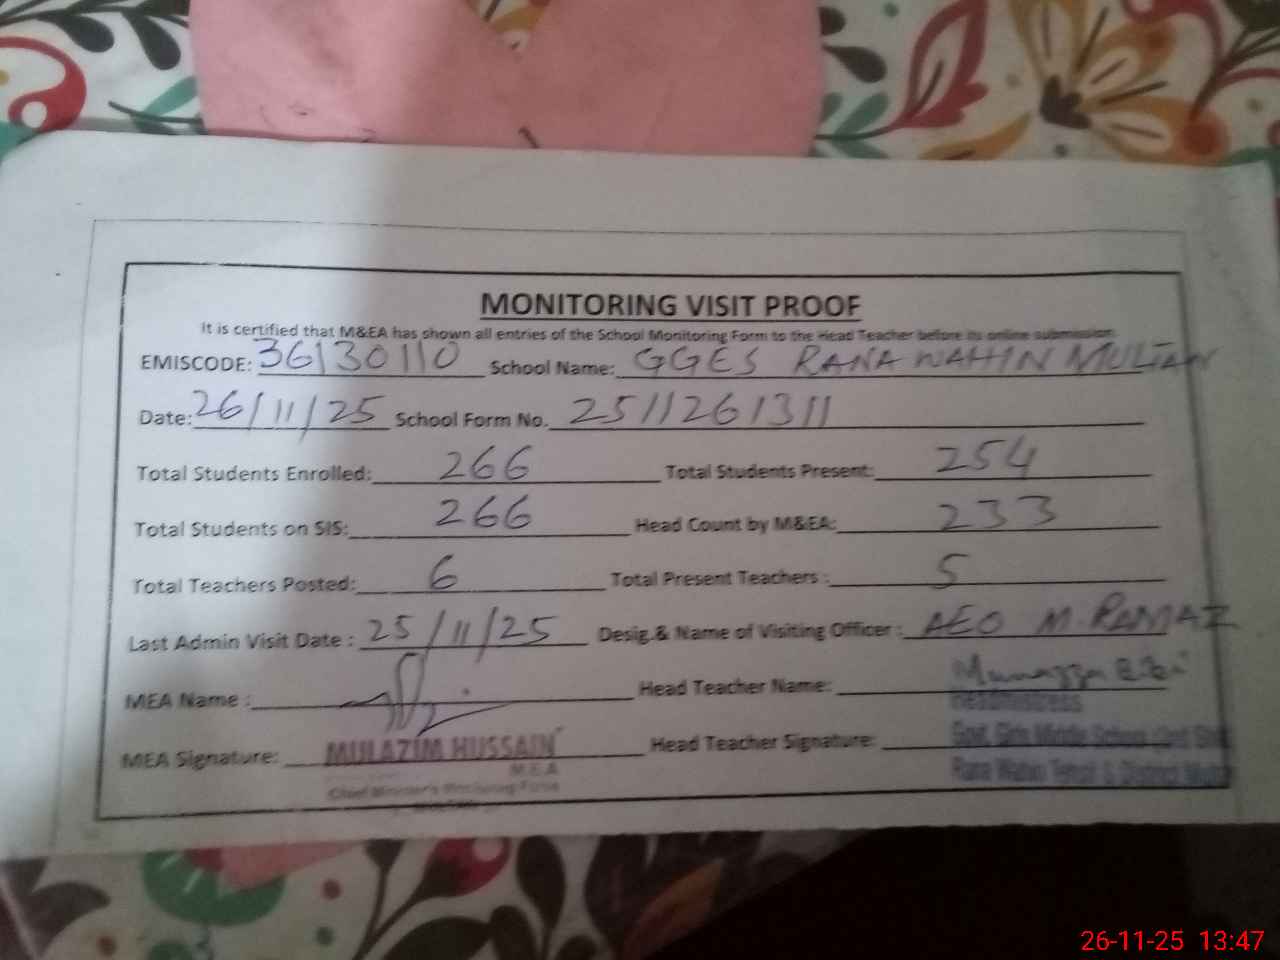 MONITORING VISIT PROOF
It is certified that M&EA has shown all entries of the School Monitoring Form to the Head Teacher before its online submission.
EMISCODE: 36130110 School Name: GGES RANA WAHIN MULTAN
Date: 26/11/25 School Form No. 2511261311
Total Students Enrolled: 266 Total Students Present: 254
Total Students on SIS: 266 Head Count by M&EA: 233
Total Teachers Posted: 6 Total Present Teachers : 5
Last Admin Visit Date : 25/11/25 Desig.& Name of Visiting Officer : AEO M. RAMAZ
MEA Name : Head Teacher Name: Munazza Bibi
Headmistress
MEA Signature: MULAZIM HUSSAIN Head Teacher Signature: Govt. Girls Middle School
M.E.A Rana Wahin Tehsil & District Multan
Chief Minister's Monitoring Force
26-11-25 13:47